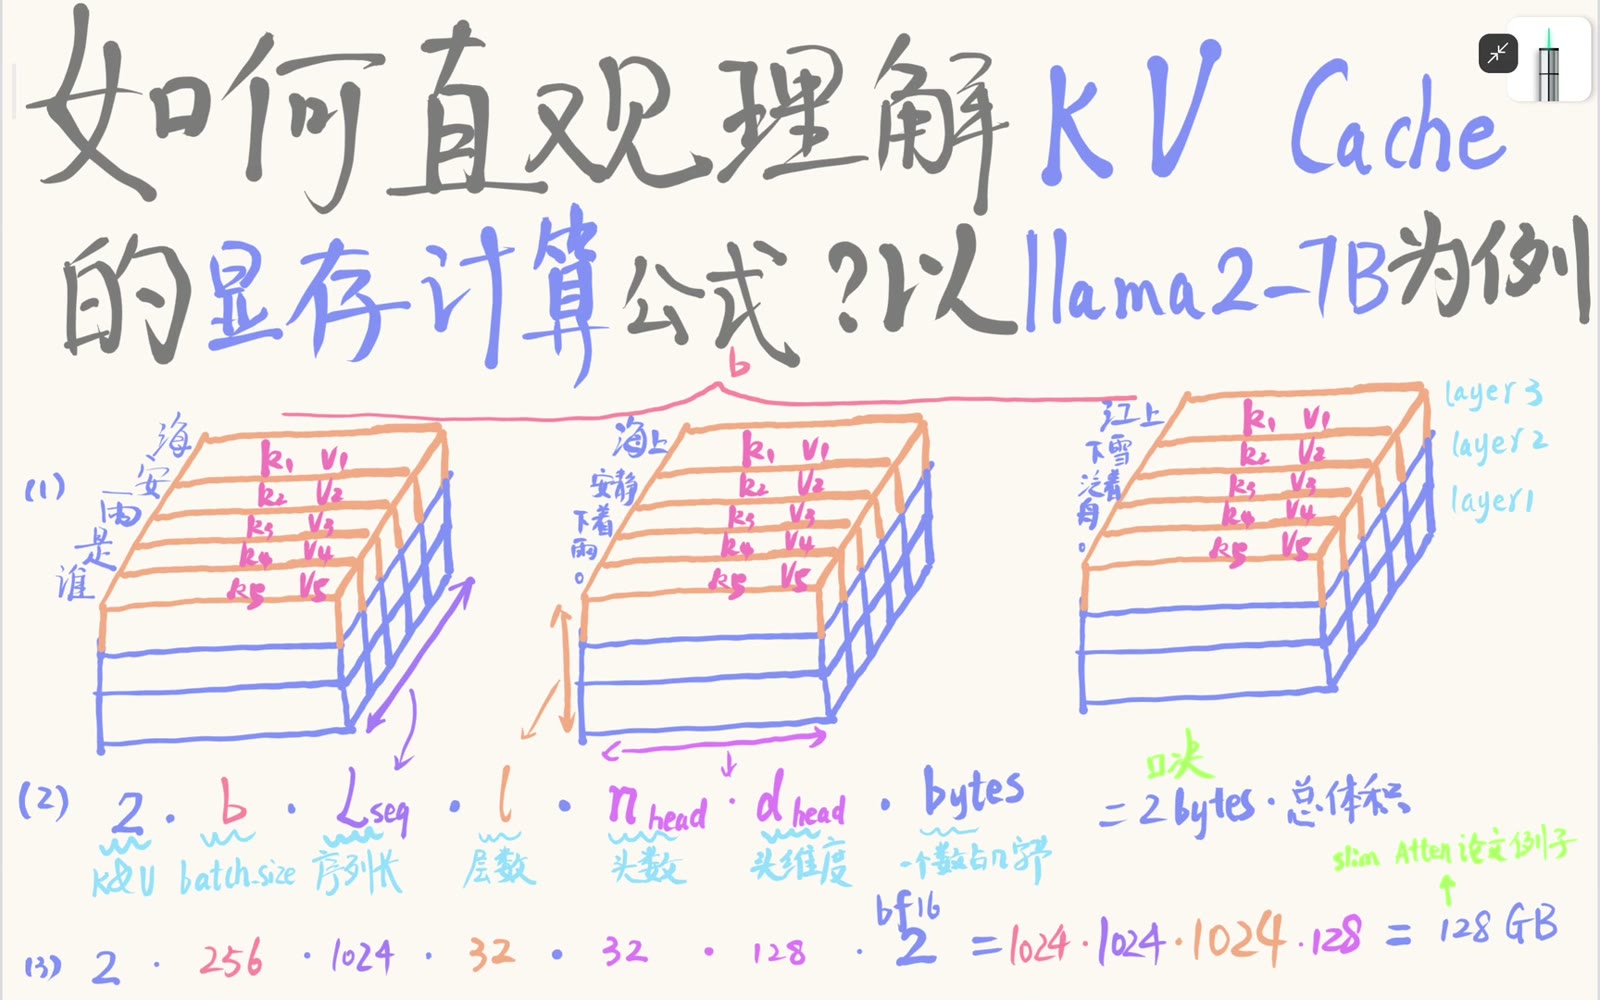 如何直观理解 KV Cache
的显存计算公式?以llama2-7B为例
b
(1)
海
安
雨
是
谁
k₁ V₁
k₂ V₂
k₃ V₃
k₄ V₄
k₅ V₅
海上
安静
下着
雨
。
k₁ V₁
k₂ V₂
k₃ V₃
k₄ V₄
k₅ V₅
江上
下雪
泛着
舟
。
k₁ V₁
k₂ V₂
k₃ V₃
k₄ V₄
k₅ V₅
layer 3
layer 2
layer 1
口决
(2) 2 · b · Lseq · l · n head · d head · bytes = 2 bytes · 总体积
K&V batch_size 序列长 层数 头数 头维度 一个数占n字节
slim Atten 论文例子
bf16
(3) 2 · 256 · 1024 · 32 · 32 · 128 · 2 = 1024 · 1024 · 1024 · 128 = 128 GB